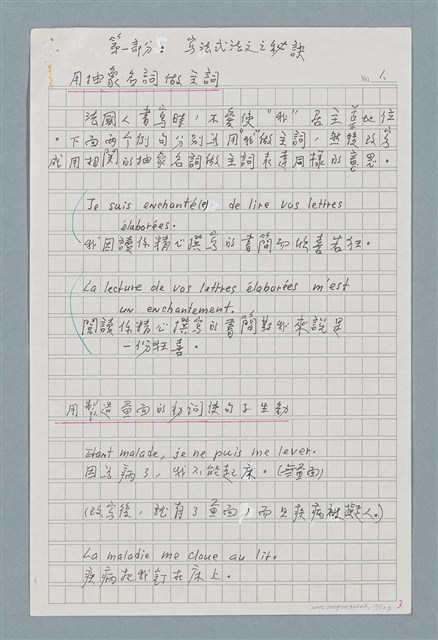 第一部分：寫法式法文之秘訣
用抽象名詞做主詞
No. 1.
法國人書寫時，不愛使"我"居主要地位
。下面兩个例句分別是用"我"做主詞，然後改寫
成用相関的抽象名詞做主詞表達同樣的意思。
Je suis enchanté(e) de lire vos lettres
élaborées.
我因讀你精心撰寫的書簡而欣喜若狂。
La lecture de vos lettres élaborées m'est
un enchantement.
閱讀你精心撰寫的書簡對我來說是
一份狂喜。
用製造畫面的動詞使句子生動
Etant malade, je ne puis me lever.
因為病了，我不能起床。(無畫面)
(改寫後，就有了畫面，而且疾病被擬人。)
La maladie me cloue au lit.
疾病把我釘在床上。
3